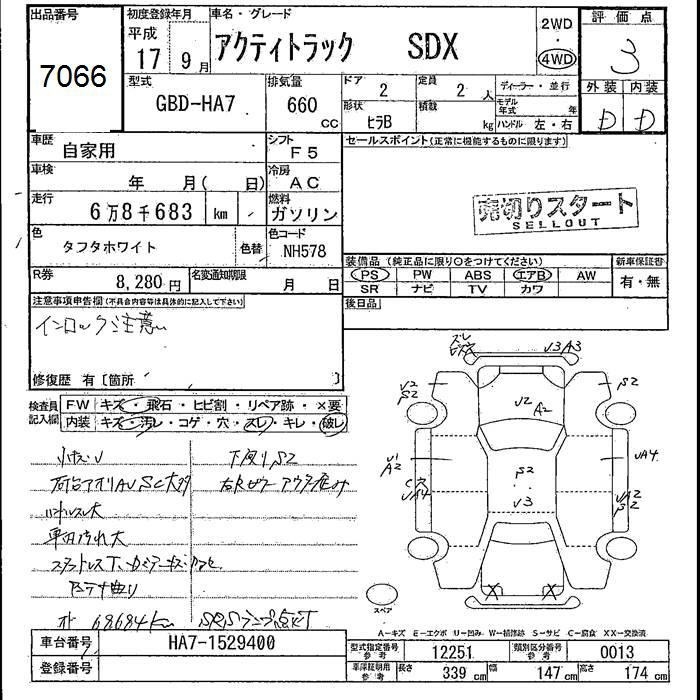 出品番号
7066
初度登録年月
平成
17 9月
車名・グレード
アクティトラック SDX
2WD
・
4WD
評価点
3
型式
GBD-HA7
排気量
660
cc
ドア
2
定員
2 人
形状
ヒラB
積載
kg
ディーラー・並行
モデル年式 年
ハンドル 左・右
外装 内装
D D
車歴
自家用
シフト
F5
車検
年 月( 日)
冷房
AC
走行
6万8千683 km
燃料
ガソリン
色
タフタホワイト
色替
色コード
NH578
R券
8,280円
名変通知期限
月 日
セールスポイント(正常に機能するものに限ります)
売切りスタート
SELLOUT
装備品(純正品に限り○をつけてください)
PS PW ABS エアB AW
SR ナビ TV カワ
新車保証書
有・無
後日品
注意事項申告欄(不具合内容等は具体的に記入して下さい)
インロック注意
修復歴 有〔箇所 〕
検査員記入欄
FW キズ・飛石・ヒビ割・リペア跡・×要
内装 キズ・汚レ・コゲ・穴・スレ・キレ・破レ
小キズU
下廻りS2
ハンドルスレ大
車内汚れ大
アンテナ曲り
68684km SRSランプ点灯
ズレ
U3 A3
U2
S2
S2
U2
A2
U1
A2
S2
U3
UA4
C穴
UA2
S2
X X
スペア
A−キズ E−エクボ U−凹み W−補修跡 S−サビ C−腐食 XX−交換済
車台番号
HA7-1529400
登録番号
型式指定番号
参考
12251
類別区分番号
参考
0013
車庫証明用
参考
長さ 339 cm 幅 147 cm 高さ 174 cm